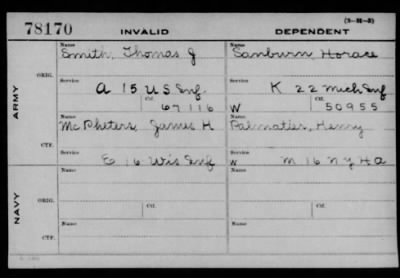 78170 INVALID DEPENDENT (3-21-3)
ARMY
ORIG.
Name Name
Smith, Thomas J Sanburn, Horace
Service Service
A 15 U S Inf K 22 Mich Inf
Ctf. Ctf.
67116 W 50955
CTF.
Name Name
McPheters, James H Palmatier, Henry
Service Service
E 16 Wis Inf W M 16 N Y H A
NAVY
ORIG.
Name Name
Service Ctf. Service Ctf.
CTF.
Name Name